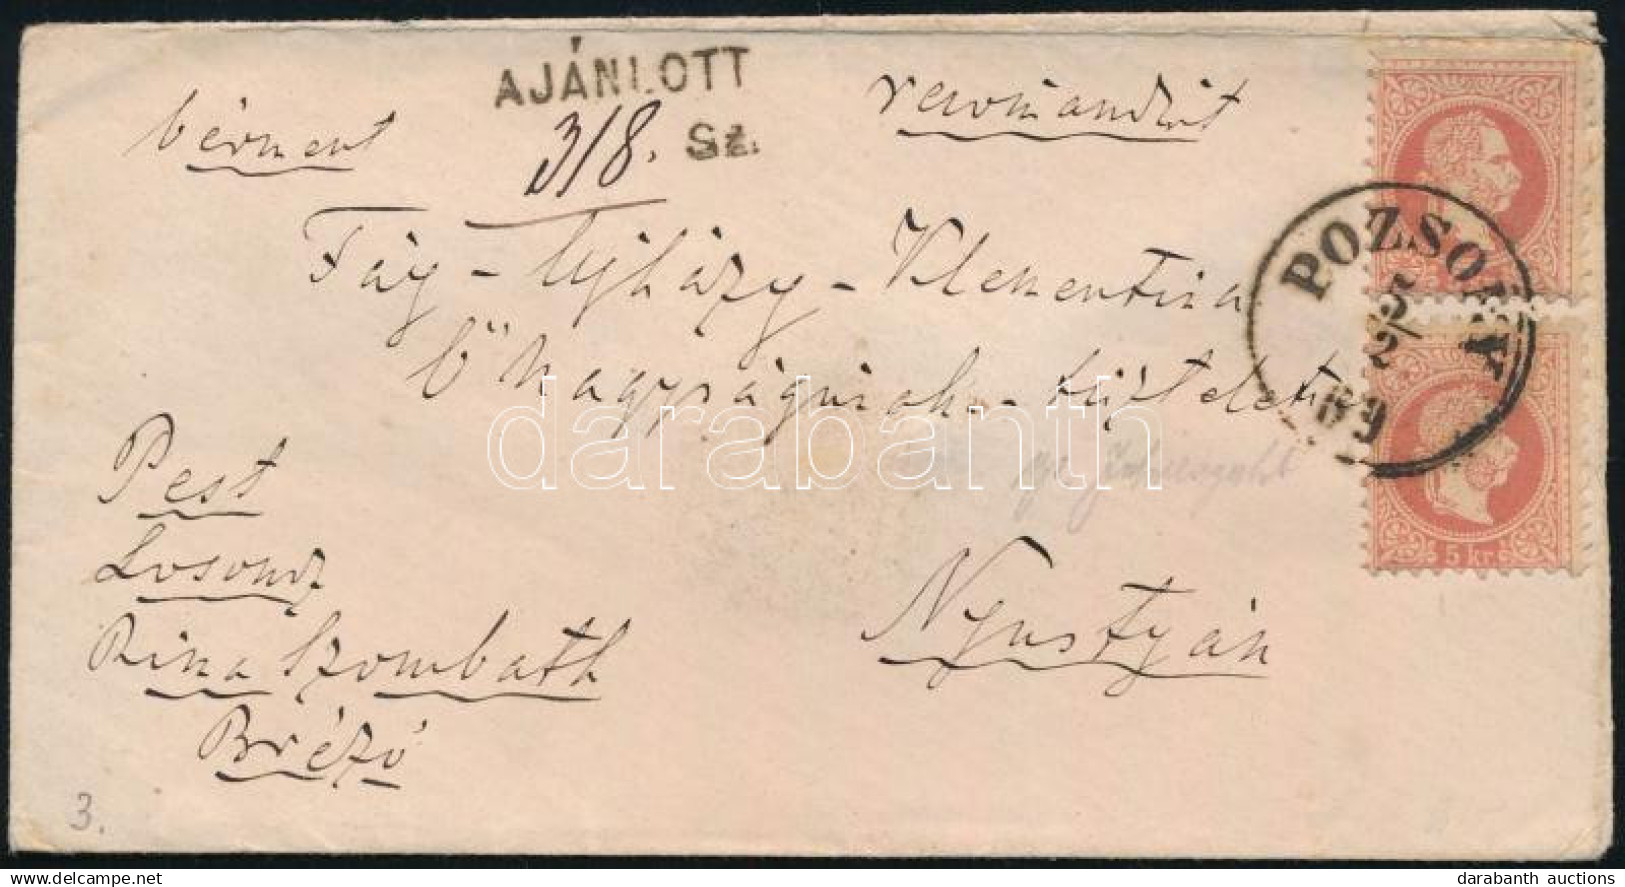 AJÁNLOTT
bérment
318. Sz.
recomandirt
POZSONY
5/2
69
Fáy-Ujházy-Klementina
Ő nagyságának - tisztelettel
darabanth
Pest
Losoncz
Rima Szombath
Brézó
Nyustyán
5 kr
3.
delcampe.net
darabanth auctions